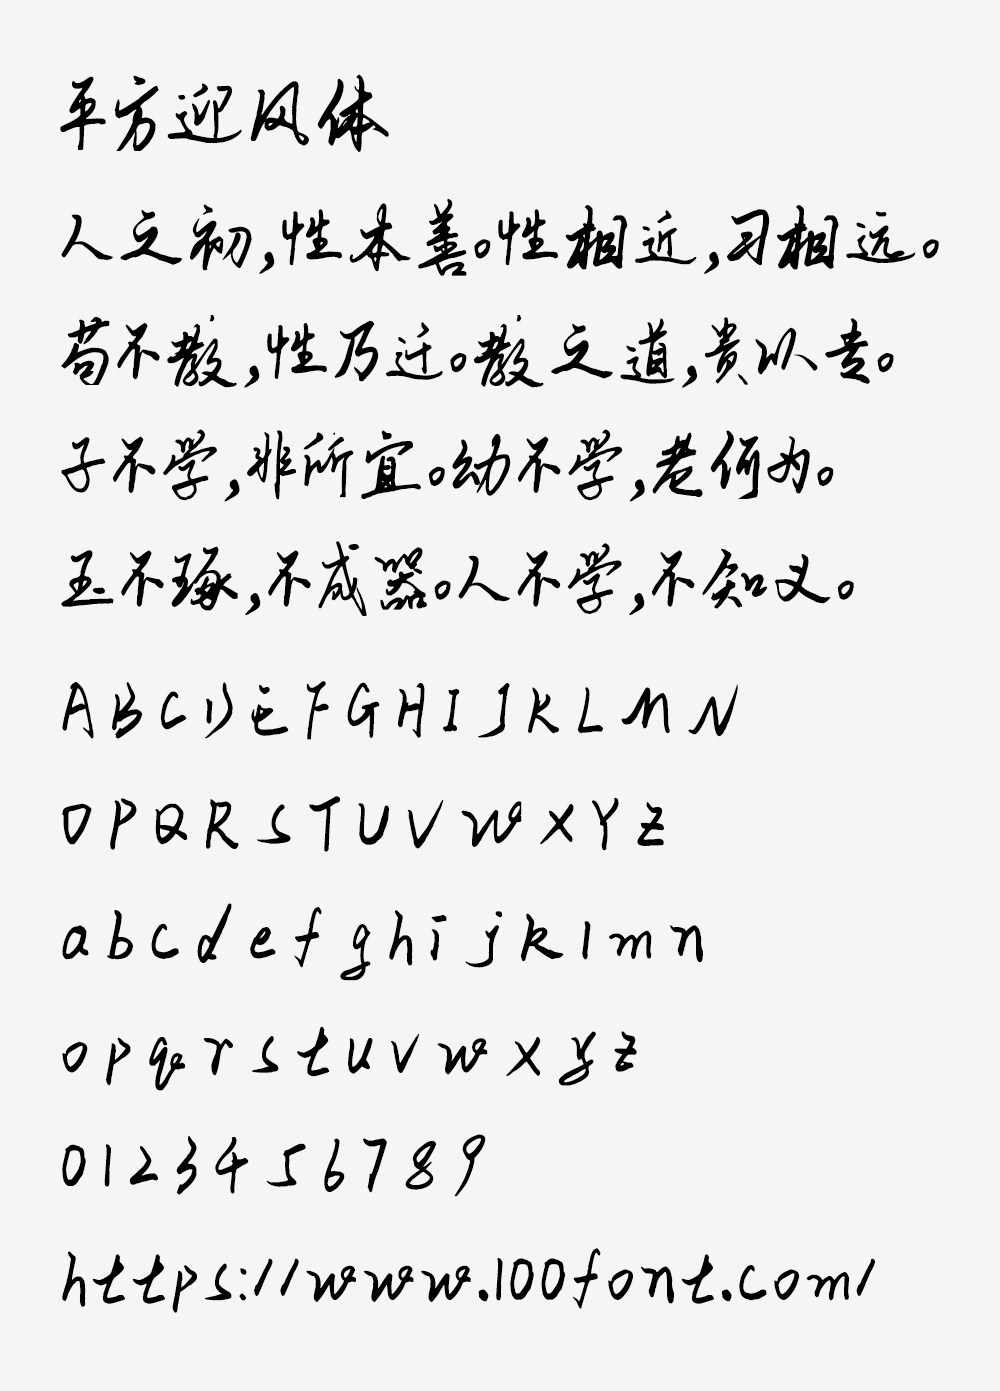 平方迎风体
人之初,性本善。性相近,习相远。
苟不教,性乃迁。教之道,贵以专。
子不学,非所宜。幼不学,老何为。
玉不琢,不成器。人不学,不知义。
ABCDEFGHIJKLMN
OPQRSTUVWXYZ
abcdefghijklmn
opqrstuvwxyz
0123456789
https://www.100font.com/